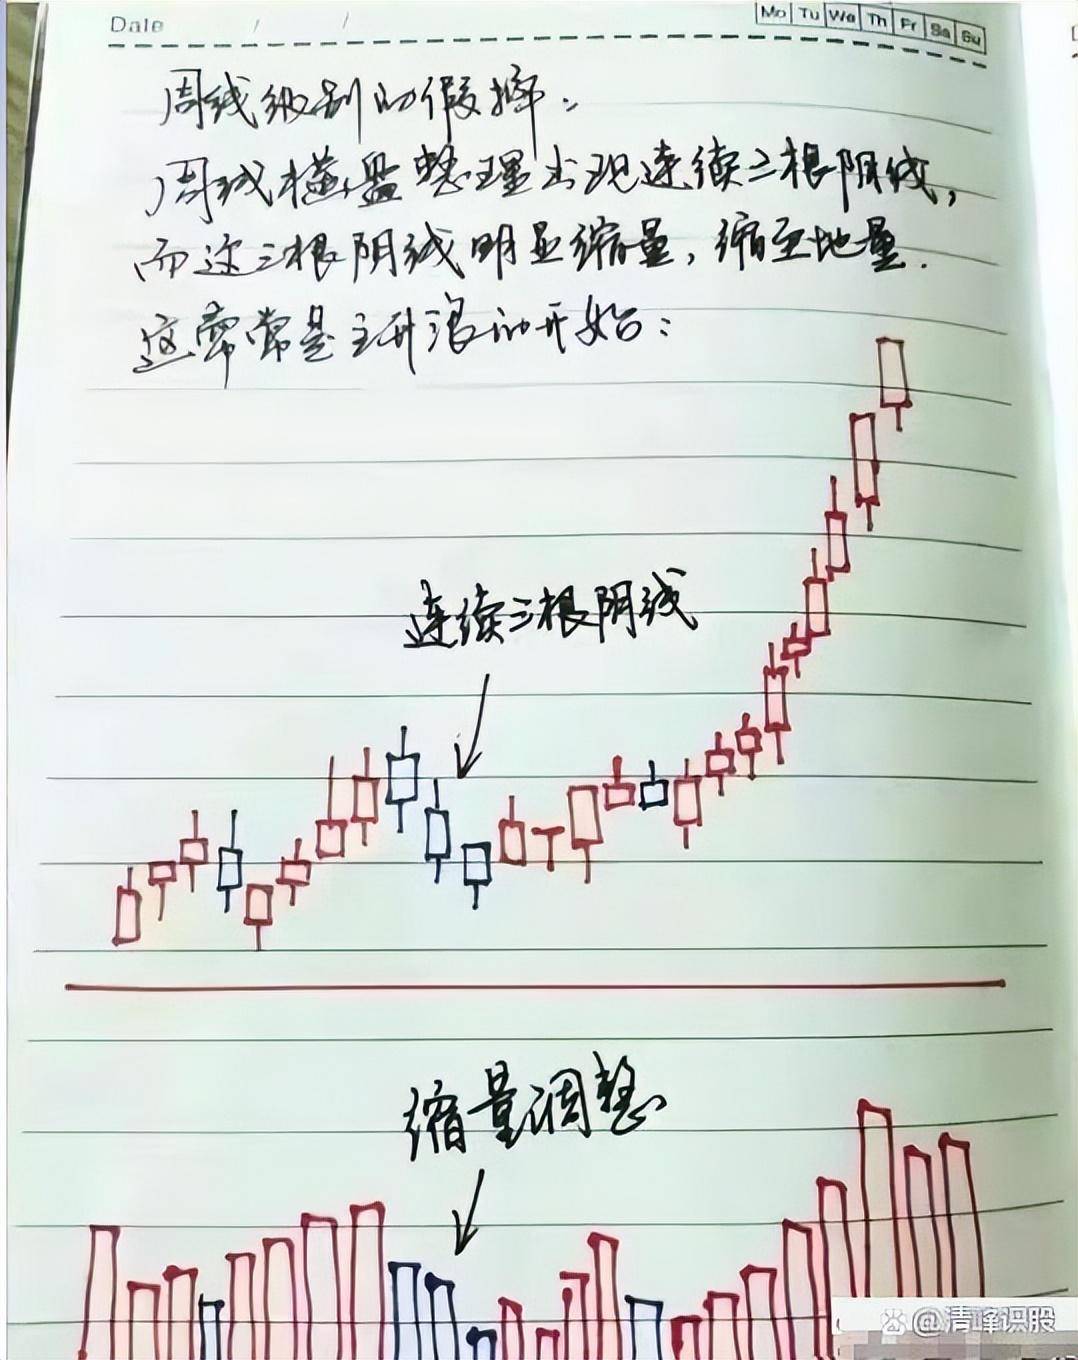 Date / /
Mo Tu We Th Fr Sa Su
周线级别的假摔:
周线横盘整理出现连续三根阴线,
而这三根阴线明显缩量,缩至地量.
这常常是主升浪的开始:
连续三根阴线
缩量调整
@清峰识股